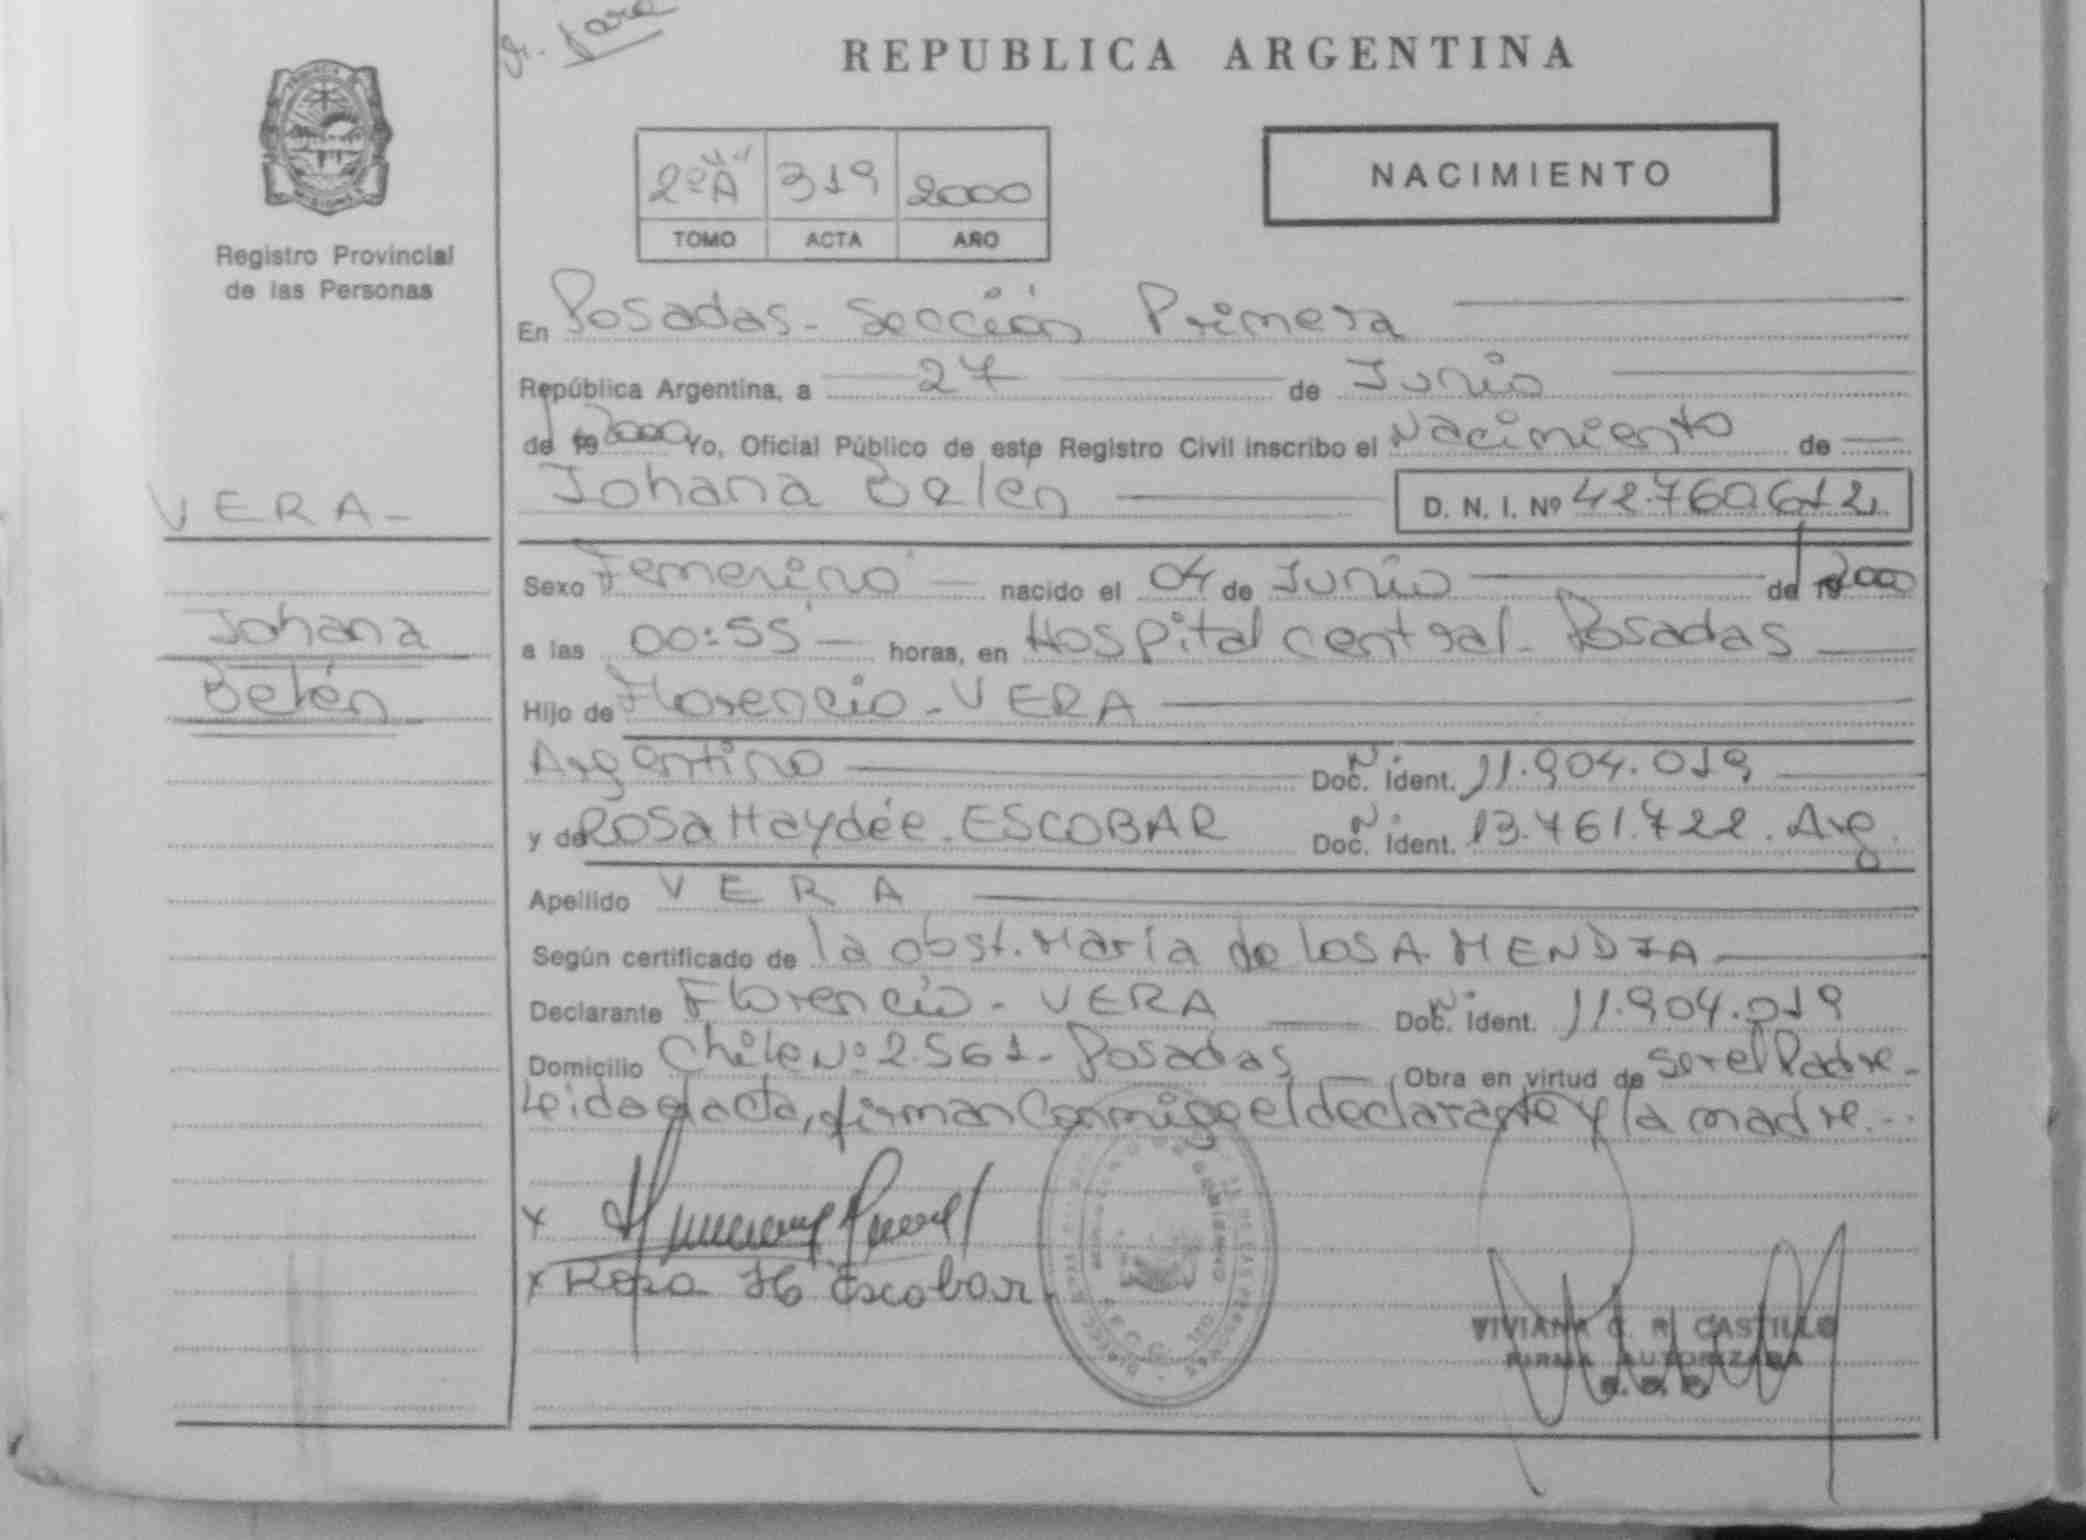 REPUBLICA ARGENTINA
NACIMIENTO
2ºA 319 2000
TOMO ACTA AÑO
Registro Provincial
de las Personas
En Posadas - Sección Primera
República Argentina, a 27 de Junio
de 19 2000 Yo, Oficial Público de este Registro Civil inscribo el Nacimiento de
VERA -
Johana Belén D. N. I. Nº 42.760.612
Sexo Femenino nacido el 04 de Junio de 19 2000
Johana
a las 00:55 horas, en Hospital central - Posadas
Belén
Hijo de Florencio - VERA
Argentino Doc. Ident. Nº 11.904.019
y de Rosa Haydée - ESCOBAR Doc. Ident. Nº 13.761.722. Arg.
Apellido VERA
Según certificado de la obst. María de los A.
Declarante Florencio - VERA Doc. Ident. Nº 11.904.019
Domicilio Chile Nº 2.561 - Posadas Obra en virtud de ser el Padre -
Leida el acta, firman Conmigo el declarante y la madre...
x
x Rosa H Escobar
VIVIANA C. R. CASTILLO
FIRMA AUTORIZADA